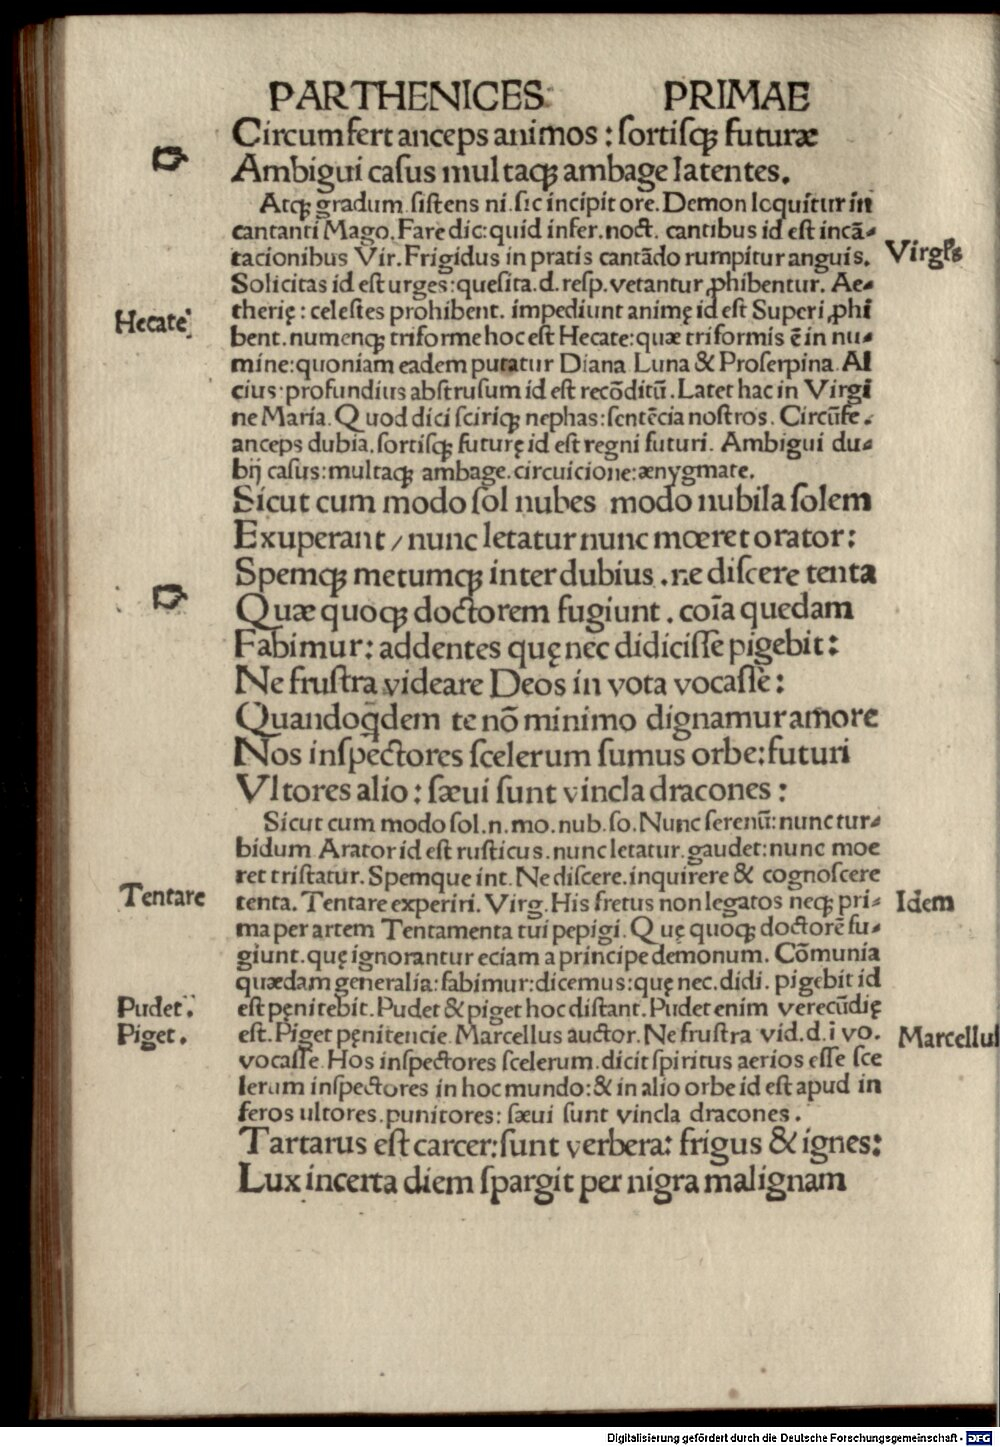 PARTHENICES PRIMAE
Circumfert anceps animos : ſortiſqꝫ futuræ
Ambigui caſus multaqꝫ ambage latentes.
Atqꝫ gradum ſiſtens ni. ſic incipit ore. Demon loquitur in
cantanti Mago. Fare dic: quid infer. noct. cantibus id eſt incã-
tacionibus Vir. Frigidus in pratis cantãdo rumpitur anguis.
Virgꝉs
Solicitas id eſt urges: queſita. d. reſp. vetantur ꝓhibentur. Ae-
therię : celeſtes prohibent. impediunt animę id eſt Superi ꝓhi
Hecate
bent. numenqꝫ triforme hoc eſt Hecate: quæ triformis ē in nu-
mine: quoniam eadem putatur Diana Luna & Proſerpina. Al
cius: profundius abſtruſum id eſt recõditũ. Latet hac in Virgi
ne Maria. Quod dici ſciriqꝫ nephas: ſentēcia noſtros. Circũfe.
anceps dubia. ſortiſqꝫ futurę id eſt regni futuri. Ambigui du-
bij caſus: multaqꝫ ambage. circuicione: ænygmate.
Sicut cum modo ſol nubes modo nubila ſolem
Exuperant / nunc letatur nunc mœret orator :
Spemqꝫ metumqꝫ inter dubius . ne diſcere tenta
Quæ quoqꝫ doctorem fugiunt . coīa quedam
Fabimur : addentes quę nec didiciſſe pigebit :
Ne fruſtra videare Deos in vota vocaſſe :
Quandoqdem te nõ minimo dignamur amore
Nos inſpectores ſcelerum ſumus orbe: futuri
Vltores alio : ſæui ſunt vincla dracones :
Sicut cum modo ſol. n. mo. nub. ſo. Nunc ſerenũ: nunc tur-
bidum Arator id eſt ruſticus. nunc letatur. gaudet: nunc moe
ret triſtatur. Spemque int. Ne diſcere. inquirere & cognoſcere
Tentare
tenta. Tentare experiri. Virg. His fretus non legatos neqꝫ pri-
Idem
ma per artem Tentamenta tui pepigi. Quę quoqꝫ doctorē fu-
giunt. quę ignorantur eciam a principe demonum. Cõmunia
quædam generalia: fabimur: dicemus: quę nec. didi. pigebit id
Pudet.
eſt pęnitebit. Pudet & piget hoc diſtant. Pudet enim verecũdię
Piget.
eſt. Piget pęnitencie. Marcellus auctor. Ne fruſtra vid. d. ī vo.
Marcellus
vocaſſe. Hos inſpectores ſcelerum. dicit ſpiritus aerios eſſe ſce
lerum inſpectores in hoc mundo: & in alio orbe id eſt apud in
feros ultores. punitores: ſæui ſunt vincla dracones.
Tartarus eſt carcer: ſunt verbera: frigus & ignes:
Lux incerta diem ſpargit per nigra malignam
Digitalisierung gefördert durch die Deutsche Forschungsgemeinschaft - DFG